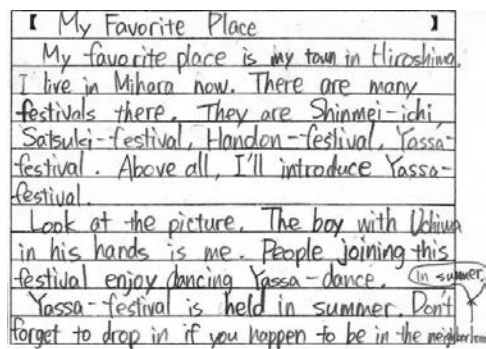 【 My Favorite Place 】
My favorite place is my town in Hiroshima.
I live in Mihara now. There are many
festivals there. They are Shinmei-ichi,
Satsuki-festival, Handon-festival, Yassa-
festival. Above all, I'll introduce Yassa-
festival.
Look at the picture. The boy with Uchiwa
in his hands is me. People joining this
festival enjoy dancing Yassa-dance.
In summer,
Yassa-festival is held in summer. Don't
forget to drop in if you happen to be in the